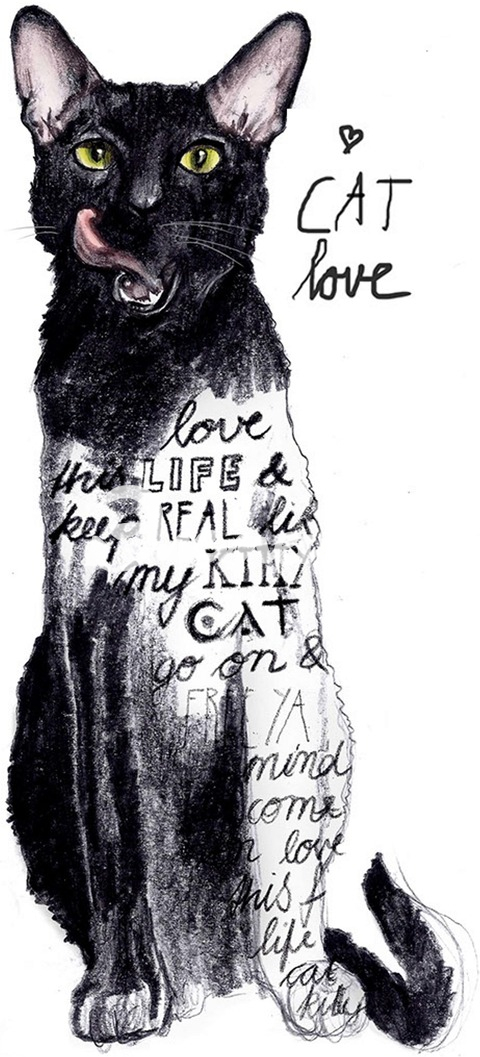 CAT
love
love
this LIFE &
keep REAL
my KITTY
CAT
go on &
FREE YA
mind
come
love
this
life
cat
kitty